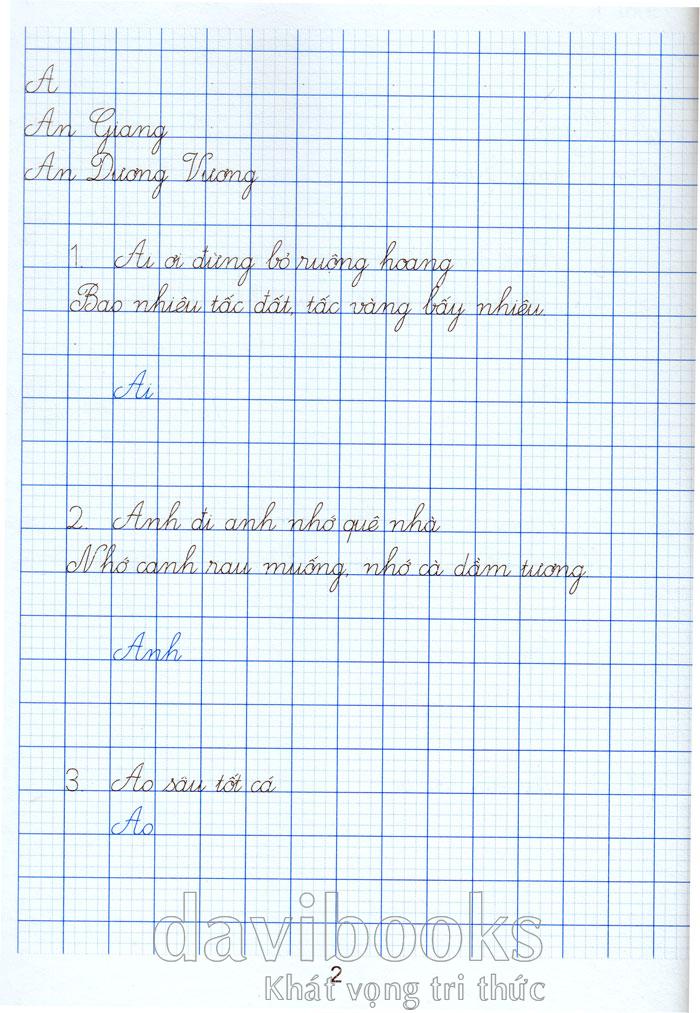 A
An Giang
An Dương Vương
1. Ai ơi đừng bỏ ruộng hoang
Bao nhiêu tấc đất, tấc vàng bấy nhiêu.
Ai
2. Anh đi anh nhớ quê nhà
Nhớ canh rau muống, nhớ cà dầm tương.
Anh
3. Ao sâu tốt cá
Ao
davibooks
2
Khát vọng tri thức